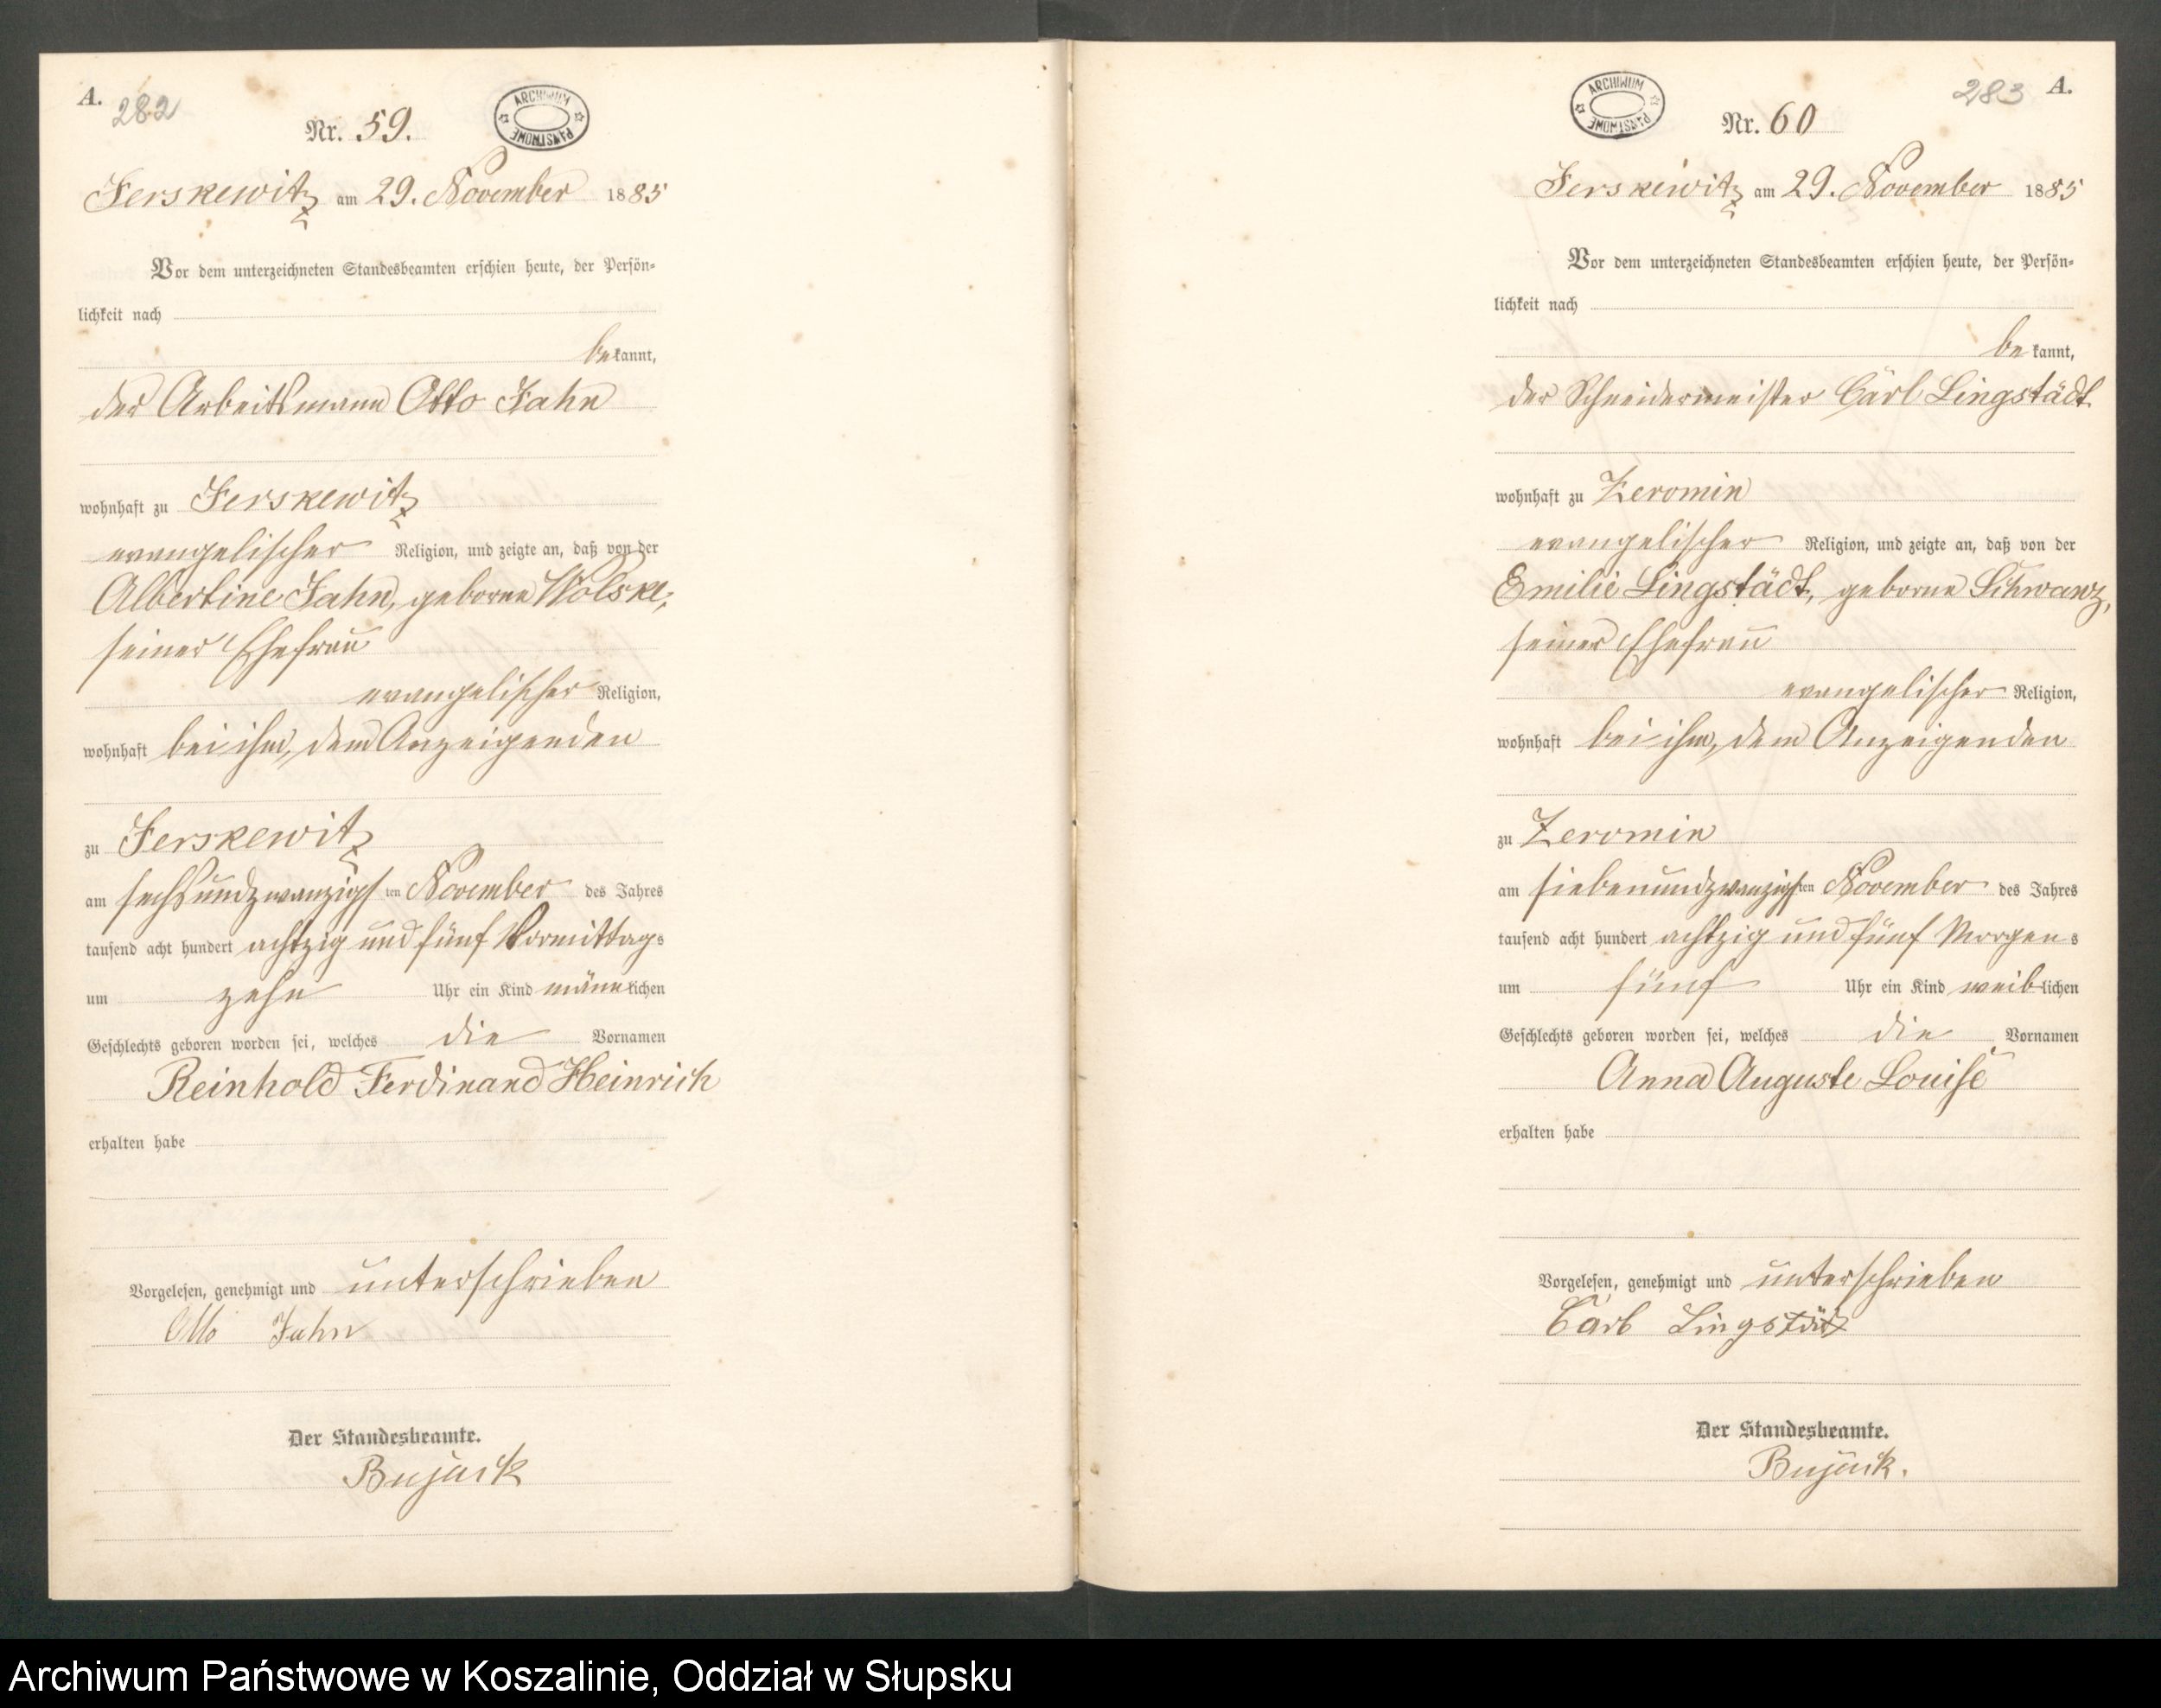 A.
282
Nr. 59.
ARCHIWUM PAŃSTWOWE
Jerskewitz am 29. November 1885
Vor dem unterzeichneten Standesbeamten erschien heute, der Persön-
lichkeit nach
bekannt,
der Arbeitsmann Otto Jahn
wohnhaft zu Jerskewitz
evangelischer Religion, und zeigte an, daß von der
Albertine Jahn, geborne Wolske,
seiner Ehefrau
evangelischer Religion,
wohnhaft bei ihm, dem Anzeigenden
zu Jerskewitz
am sechsundzwanzigsten November des Jahres
tausend acht hundert achtzig und fünf Vormittags
um zehn Uhr ein Kind männlichen
Geschlechts geboren worden sei, welches die Vornamen
Reinhold Ferdinand Heinrich
erhalten habe
Vorgelesen, genehmigt und unterschrieben
Otto Jahn
Der Standesbeamte.
Bujack
283 A.
Nr. 60
ARCHIWUM PAŃSTWOWE
Jerskewitz am 29. November 1885
Vor dem unterzeichneten Standesbeamten erschien heute, der Persön-
lichkeit nach
bekannt,
der Schneidermeister Carl Lingstädt
wohnhaft zu Zeromin
evangelischer Religion, und zeigte an, daß von der
Emilie Lingstädt, geborne Schwarz,
seiner Ehefrau
evangelischer Religion,
wohnhaft bei ihm, dem Anzeigenden
zu Zeromin
am siebenundzwanzigsten November des Jahres
tausend acht hundert achtzig und fünf Morgens
um fünf Uhr ein Kind weiblichen
Geschlechts geboren worden sei, welches die Vornamen
Anna Auguste Louise
erhalten habe
Vorgelesen, genehmigt und unterschrieben
Carl Lingstädt
Der Standesbeamte.
Bujack.
Archiwum Państwowe w Koszalinie, Oddział w Słupsku